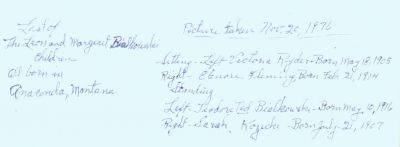 Last of
The Leon and Margaret Bialkowski
Children
all born in
Anaconda, Montana
Picture taken Nov. 20, 1976
Sitting - Left Victoria Ryder - Born May 18, 1905
Right - Eleanore Fleming, Born Feb 21, 1914
Standing
Left Teodore Ted Bialkowski - Born May 10, 1916
Right - Sarah Kozicki - Born July 21, 1907